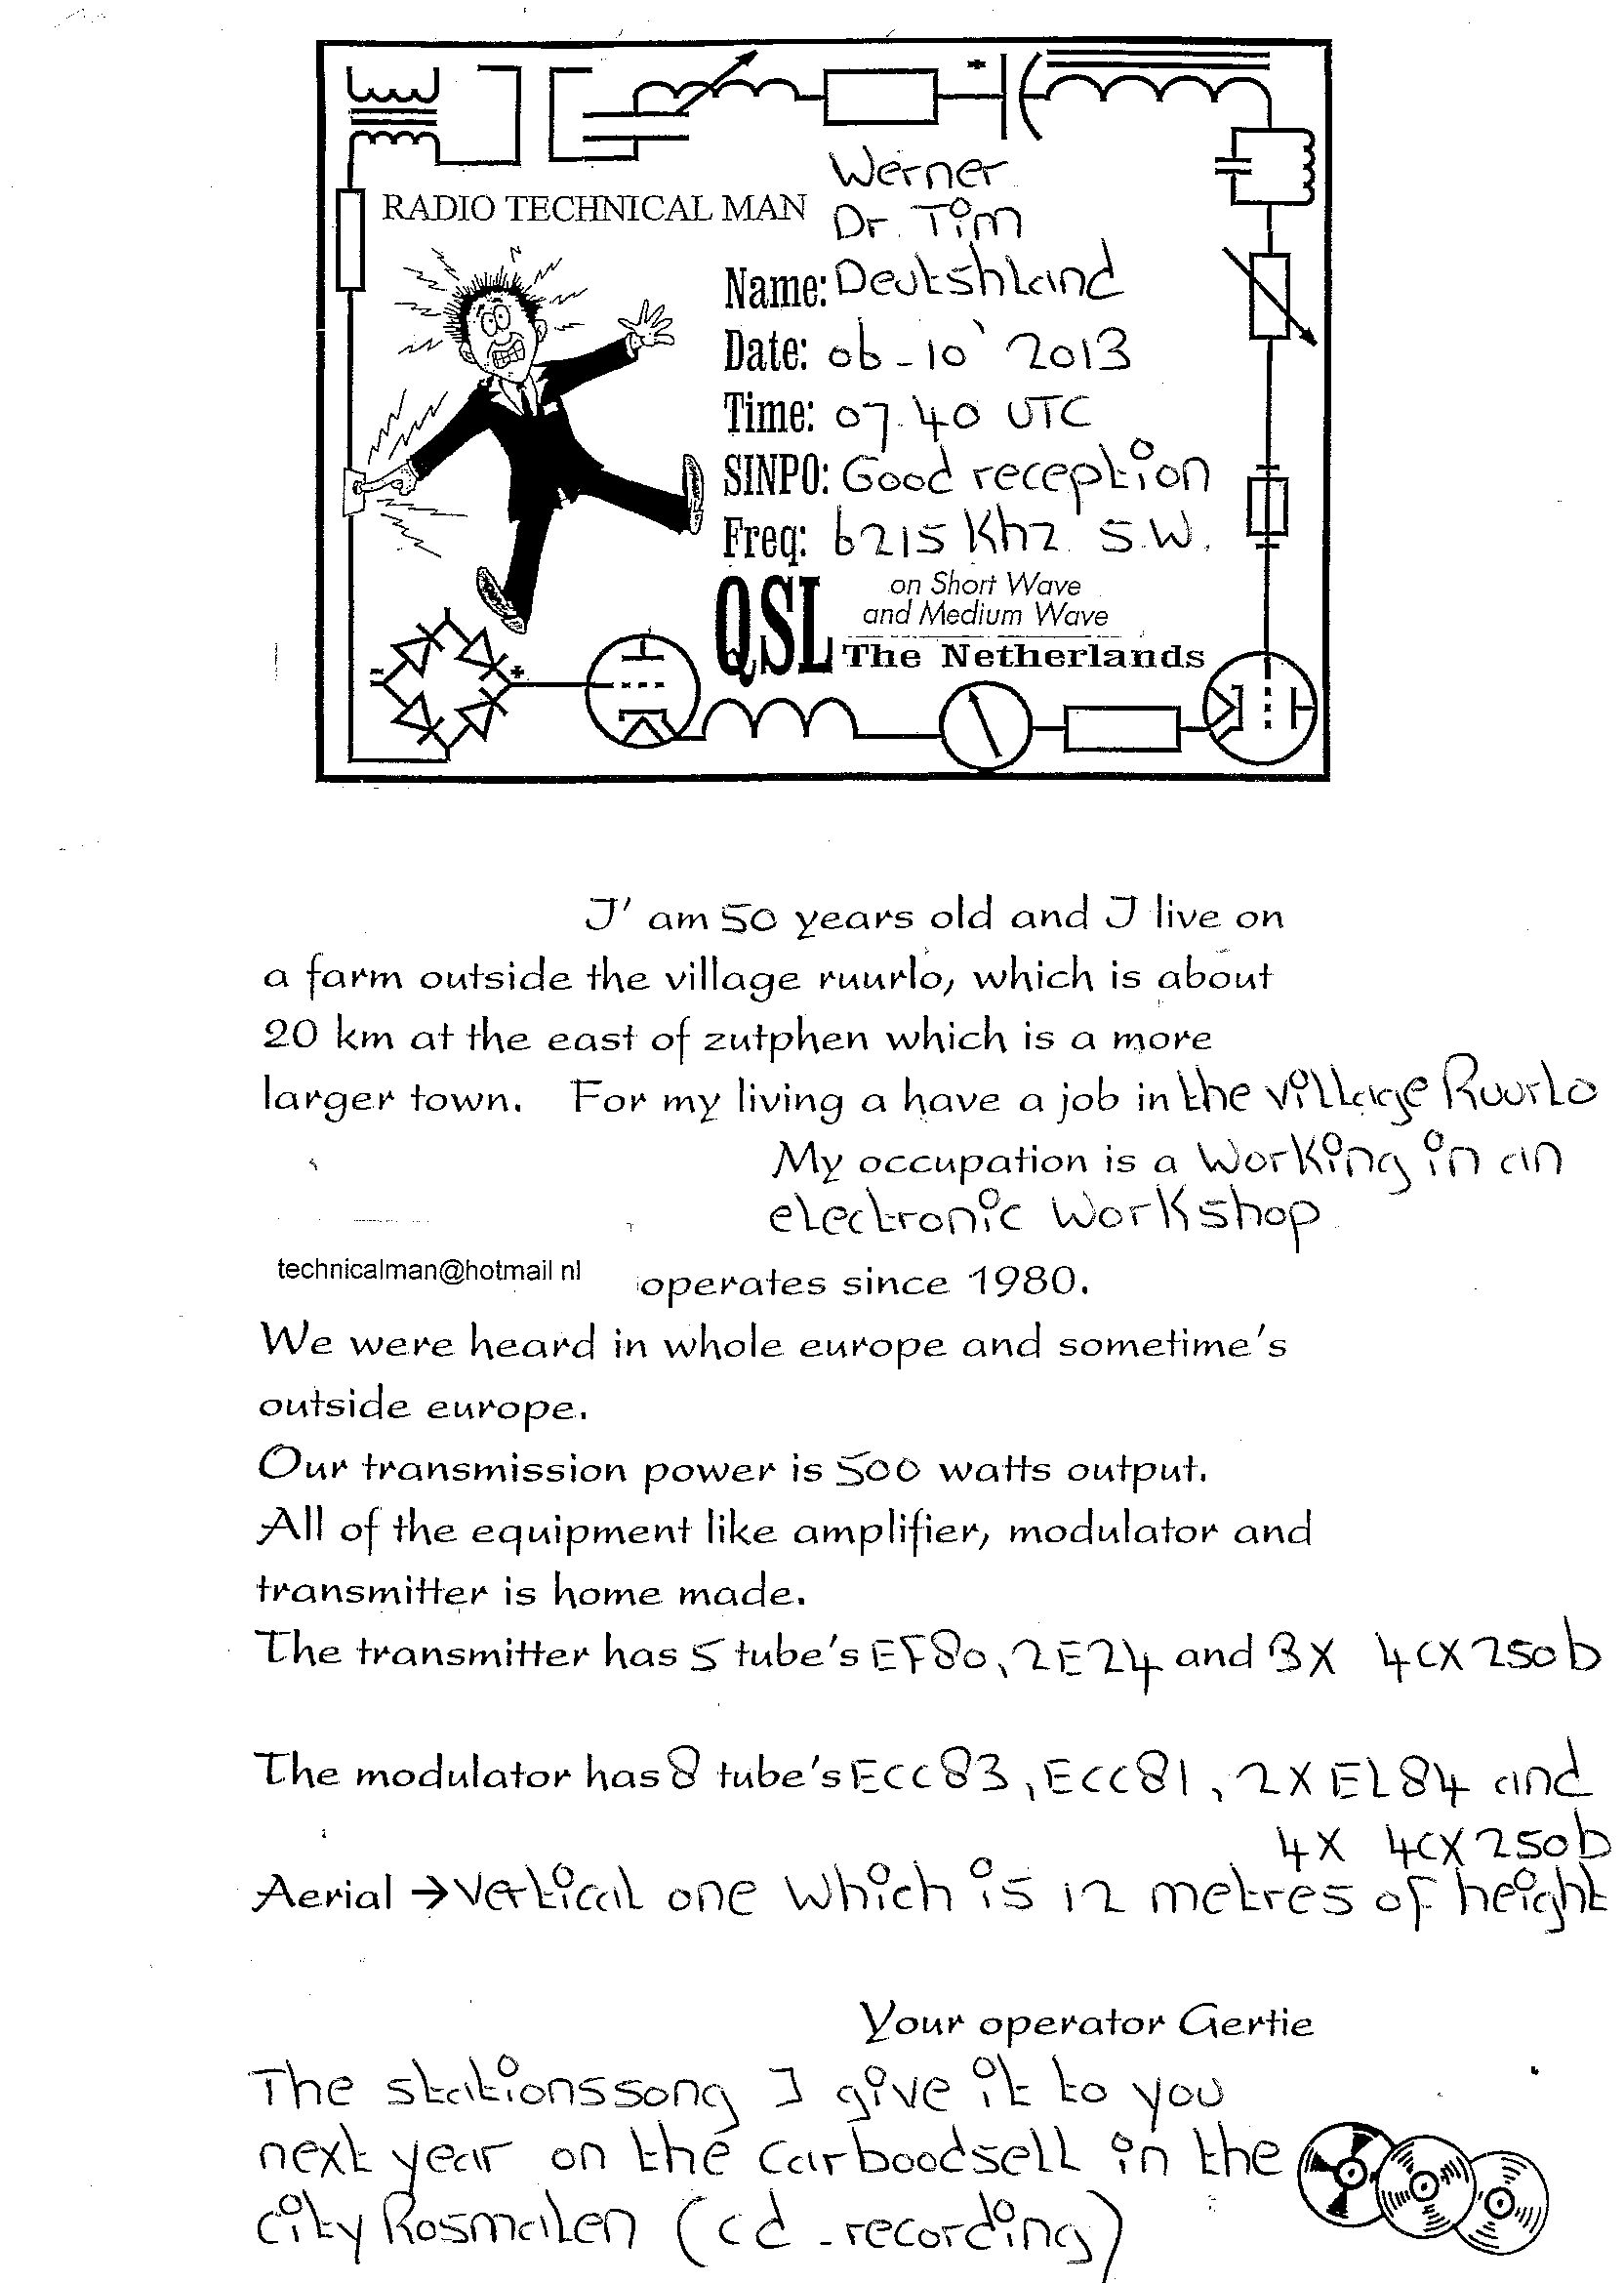 Werner
RADIO TECHNICAL MAN
Dr. Tim
Name: Deutshland
Date: 06-10' 2013
Time: 07.40 UTC
SINPO: Good reception
Freq: 6215 Khz S.W.
QSL on Short Wave
and Medium Wave
The Netherlands
I' am 50 years old and I live on
a farm outside the village ruurlo, which is about
20 km at the east of zutphen which is a more
larger town. For my living a have a job in the village Ruurlo
My occupation is a working in an
electronic workshop
technicalman@hotmail nl operates since 1980.
We were heard in whole europe and sometime's
outside europe.
Our transmission power is 500 watts output.
All of the equipment like amplifier, modulator and
transmitter is home made.
The transmitter has 5 tube's EF80, 2E24 and 3X 4CX250b
The modulator has 8 tube's ECC83, ECC81, 2X EL84 and
4X 4CX250b
Aerial → Vertical one which is 12 metres of height
Your operator Gertie
The stationssong I give it to you
next year on the carboodsell in the
city Rosmalen (cd-recording)